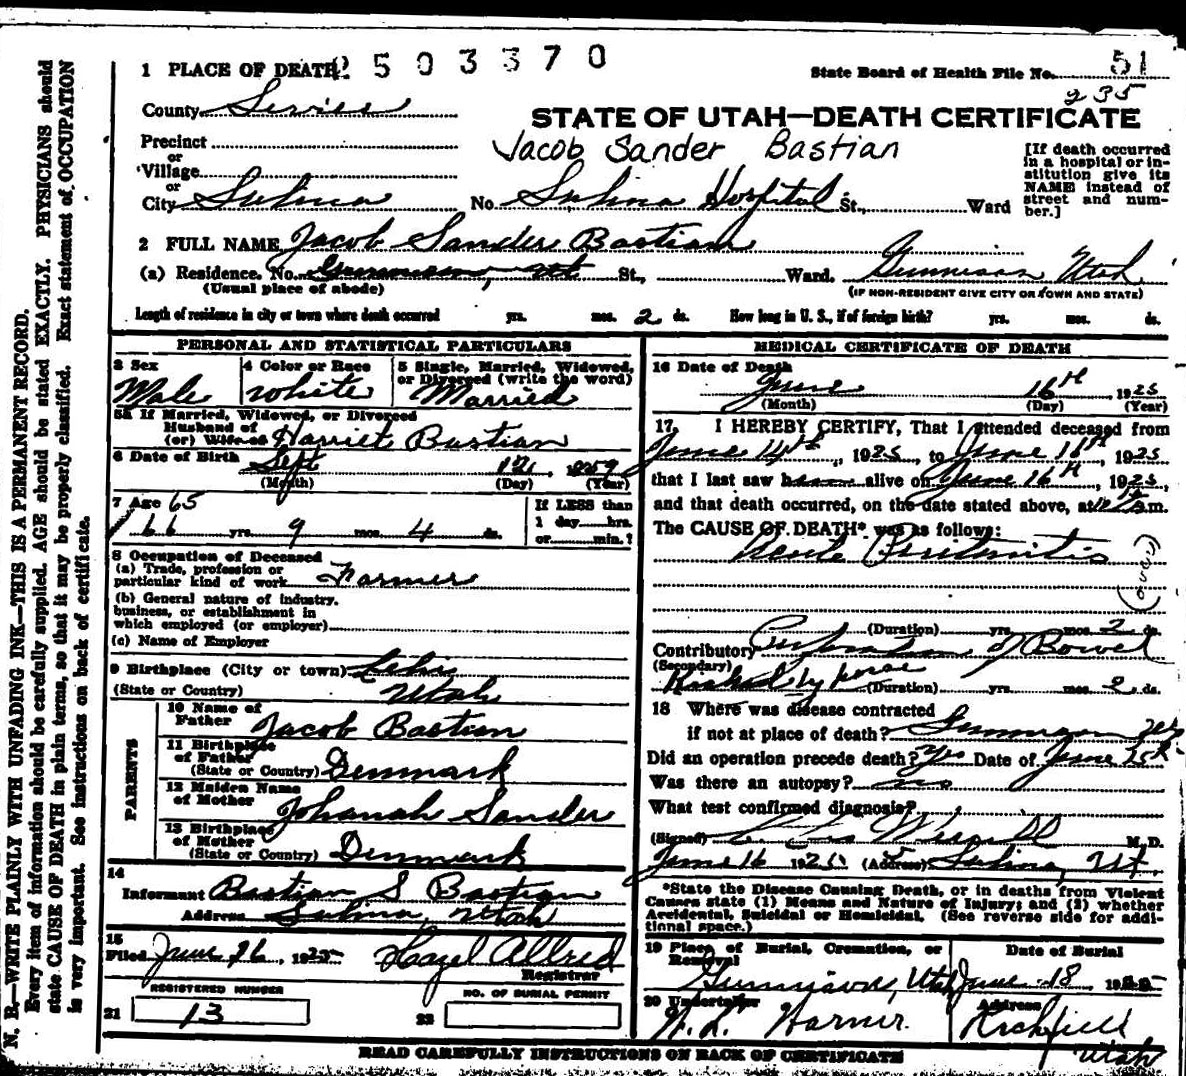 N. B.—WRITE PLAINLY WITH UNFADING INK—THIS IS A PERMANENT RECORD.
Every item of information should be carefully supplied. AGE should be stated EXACTLY. PHYSICIANS should
state CAUSE OF DEATH in plain terms, so that it may be properly classified. Exact statement of OCCUPATION
is very important. See instructions on back of certificate.
1 PLACE OF DEATH 2503370
State Board of Health File No. 51
235
County Sevier
STATE OF UTAH—DEATH CERTIFICATE
Precinct
Jacob Sander Bastian
or
Village
or
City Salina No. Salina Hospital St., Ward
[If death occurred
in a hospital or in-
stitution give its
NAME instead of
street and num-
ber.]
2 FULL NAME Jacob Sander Bastian
(a) Residence. No. Gunnison, Ut St., Ward. Gunnison Utah
(Usual place of abode) (IF NON-RESIDENT GIVE CITY OR TOWN AND STATE)
Length of residence in city or town where death occurred yrs. mos. 2 ds. How long in U. S., if of foreign birth? yrs. mos. ds.
PERSONAL AND STATISTICAL PARTICULARS
3 Sex
Male
4 Color or Race
White
5 Single, Married, Widowed,
or Divorced (write the word)
Married
5a If Married, Widowed, or Divorced
Husband of
(or) Wife of Harriet Bastian
6 Date of Birth Sept 12 1859
(Month) (Day) (Year)
7 Age 65
66 yrs. 9 mos. 4 ds.
If LESS than
1 day hrs.
or min.?
8 Occupation of Deceased
(a) Trade, profession or
particular kind of work Farmer
(b) General nature of industry.
business, or establishment in
which employed (or employer)
(c) Name of Employer
9 Birthplace (City or town) Lehi
(State or Country) Utah
PARENTS
10 Name of
Father Jacob Bastian
11 Birthplace
of Father
(State or Country) Denmark
12 Maiden Name
of Mother Johanah Sander
13 Birthplace
of Mother
(State or Country) Denmark
14
Informant Bastian S Bastian
Address Salina, Utah
15
Filed June 26, 1925 Hazel Allred
Registrar
REGISTERED NUMBER
21 13
NO. OF BURIAL PERMIT
22
MEDICAL CERTIFICATE OF DEATH
16 Date of Death
June 16th, 1925
(Month) (Day) (Year)
17. I HEREBY CERTIFY, That I attended deceased from
June 14th, 1925, to June 16th, 1925
that I last saw him alive on June 16th, 1925,
and that death occurred, on the date stated above, at m.
The CAUSE OF DEATH* was as follows:
Acute Peritonitis
(over)
(Duration) yrs. mos. 2 ds.
Contributory Perforation of Bowel
(Secondary)
Kicked by horse
(Duration) yrs. mos. 2 ds.
18 Where was disease contracted
if not at place of death? Gunnison
Did an operation precede death? yes Date of June 15th
Was there an autopsy? no
What test confirmed diagnosis?
(Signed) M.D.
June 16 1925 (Address) Salina, Ut.
*State the Disease Causing Death, or in deaths from Violent
Causes state (1) Means and Nature of Injury; and (2) whether
Accidental, Suicidal or Homicidal. (See reverse side for addi-
tional space.)
19 Place of Burial, Cremation, or
Removal
Gunnison, Utah
Date of Burial
June 18 1925
20 Undertaker
Warner
Address
Richfield
Utah
READ CAREFULLY INSTRUCTIONS ON BACK OF CERTIFICATE